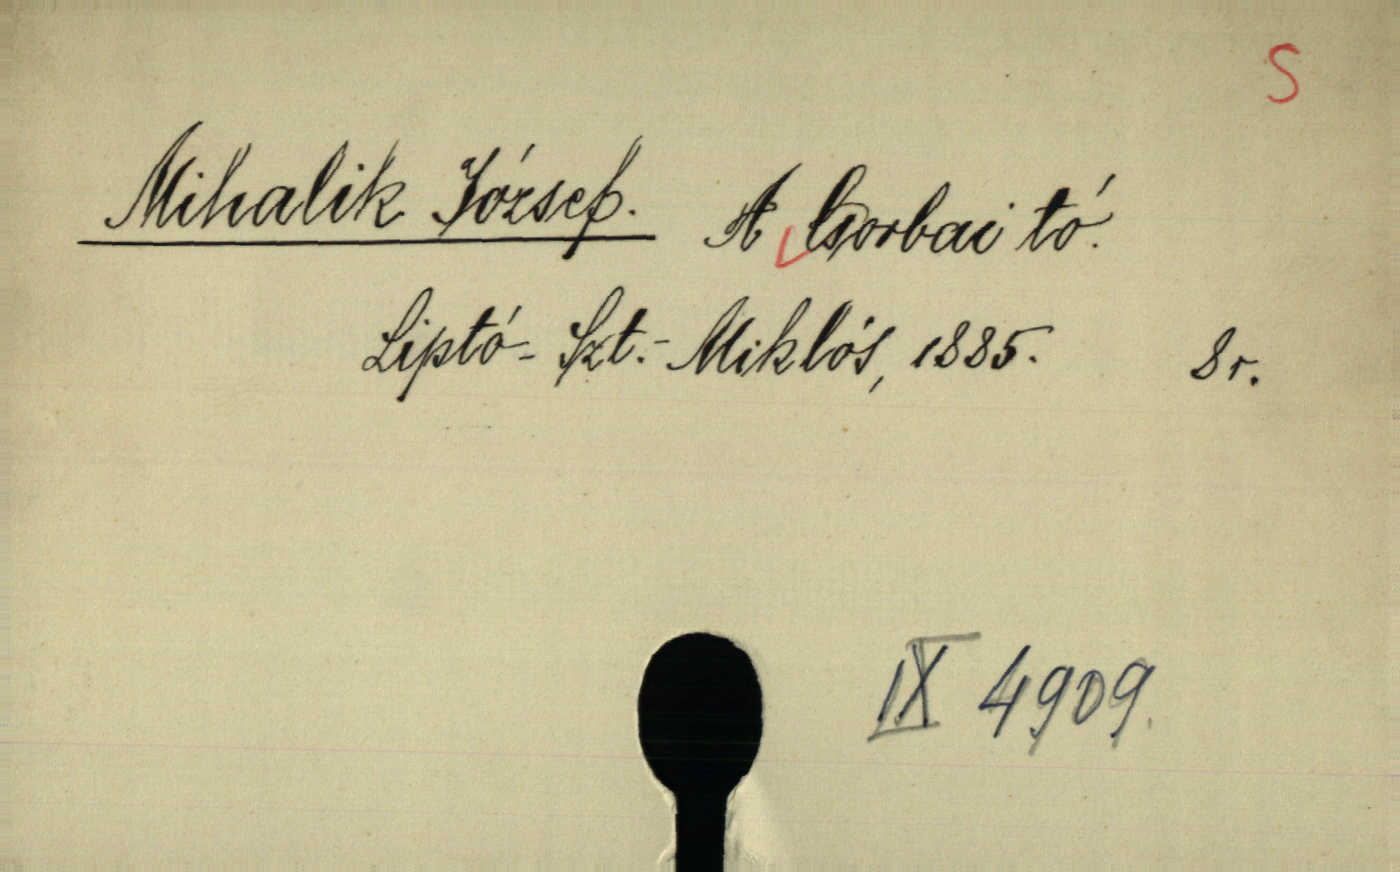 S
Mihalik József. A Csorbai tó.
Liptó-Szt.-Miklós, 1885. 8r.
IX 4909.